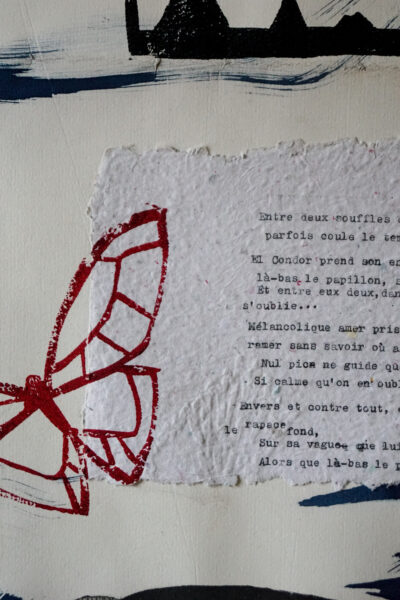 Entre deux souffles
parfois coule le
El Condor prend son
là-bas le papillon,
Et entre eux deux, dan
s'oublie...
Mélancolique amer pris
ramer sans savoir où a
Nul pica ne guide qu
Si calme qu'on en oubl
Envers et contre tout,
le rapace fond,
Sur sa vague que lui
Alors que là-bas le p